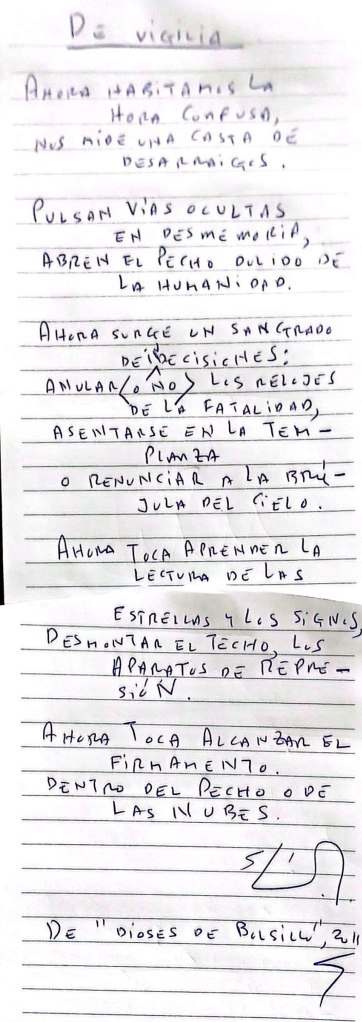 DE VIGILIA
AHORA HABITAMOS LA
HORA CONFUSA,
NOS MIDE UNA CASTA DE
DESARRAIGOS.
PULSAN VÍAS OCULTAS
EN DESMEMORIA,
ABREN EL PECHO DOLIDO DE
LA HUMANIDAD.
AHORA SURGE UN SANGRADO
DE INDECISIONES:
ANULAR (O NO) LOS RELOJES
DE LA FATALIDAD,
ASENTARSE EN LA TEM-
PLANZA
O RENUNCIAR A LA BRÚ-
JULA DEL CIELO.
AHORA TOCA APRENDER LA
LECTURA DE LAS
ESTRELLAS Y LOS SIGNOS,
DESMONTAR EL TECHO, LOS
APARATOS DE REPRE-
SIÓN.
AHORA TOCA ALCANZAR EL
FIRMAMENTO.
DENTRO DEL PECHO O DE
LAS NUBES.
DE "DIOSES DE BOLSILLO", 2011